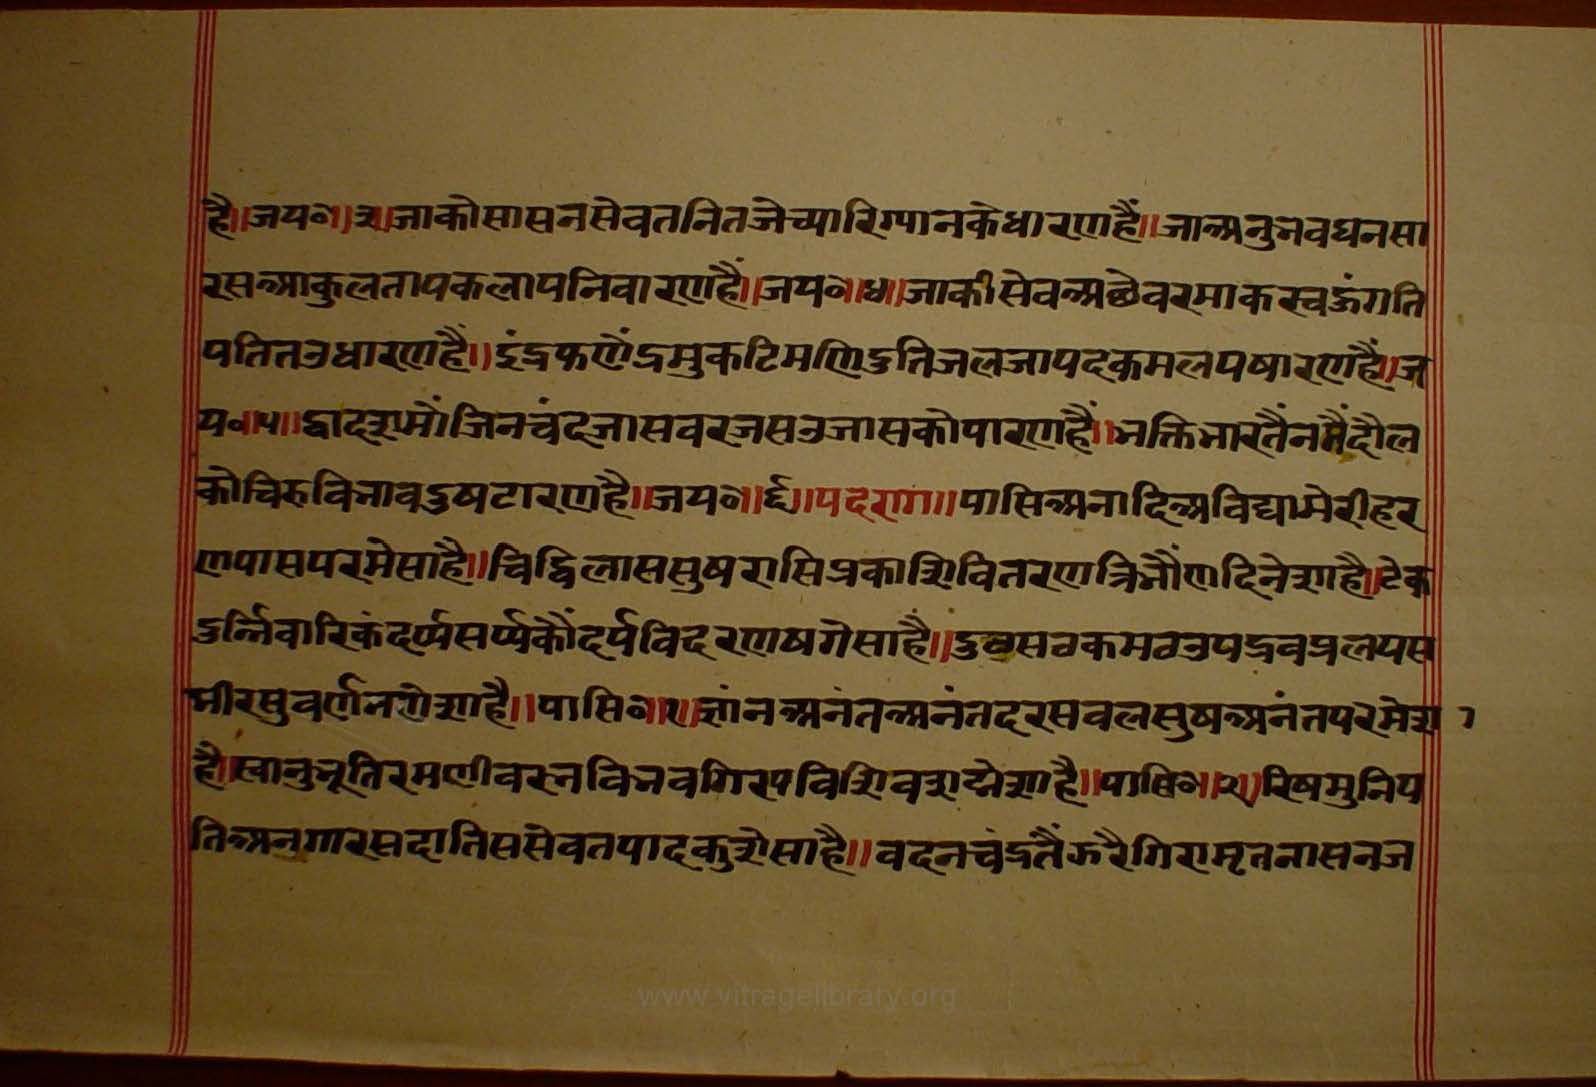 है॥जय॰॥३॥जाकोसासनसेवतनितजेच्यारिग्यानकेधारणहैं॥जाअनुभवघनसा
रसआकुलतापकलापनिवारणहैं॥जय॰॥४॥जाकीसेवअछेवरमाकरचऊंगति
पतितउधारणहैं॥इंद्रफणेंद्रमुकटिमणिदुतिजलजापदकमलपषारणहैं॥ज
य॰॥५॥द्वादशमौंजिनचंदजासवरजसउजासकोपारणहैं॥भक्तिभारतैंनमैंदौल
कोचिरुविभावदुषटारणहै॥जय॰॥६॥पदराग॥पासिअनादिअविद्यामेरीहर
णपासपरमेसाहै॥चिद्विलाससुषरासिप्रकाशिवितरणत्रिभौंणदिनेशाहै॥टेक
दुर्न्निवारिकंदर्प्पसर्प्पकौंदर्पविदरणषगेसाहै॥दुठसठकमठउपद्रवप्रलयस
मीरसुवर्णनगेशाहै॥पासि॰॥१॥ज्ञांनअनंतअनंतदरसवलसुषअनंतपरमेशा
है॥स्वानुभूतिरमणीवरनविभवगिरपविशिवशद्मेशाहै॥पासि॰॥२॥रिषमुनिय
तिअनगारसदातिससेवतपादकुशेसाहै॥वदनचंद्रतैंझरैगिरामृतनासनज
www.vitragelibrary.org